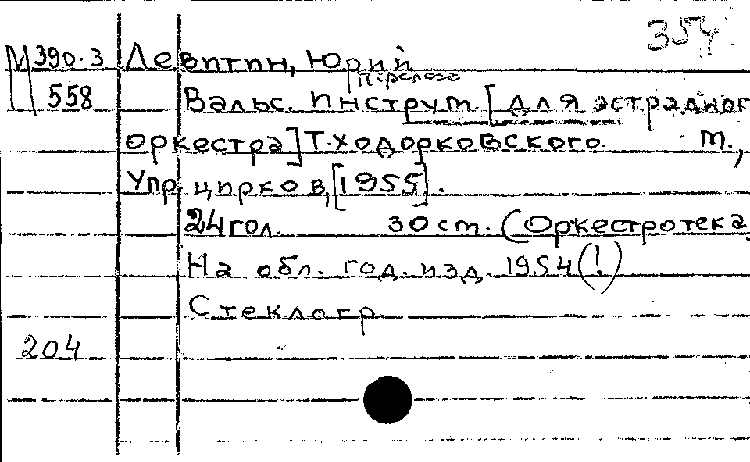 354
М390.3 Левитин, Юрий
558 Вальс. Инструм. [для эстрадног
оркестра] Т.Ходорковского. М.,
Упр. цирков, [1955].
24 гол. 30 ст. (Оркестротека
На обл. год. изд. 1954(!)
Стеклогр.
204